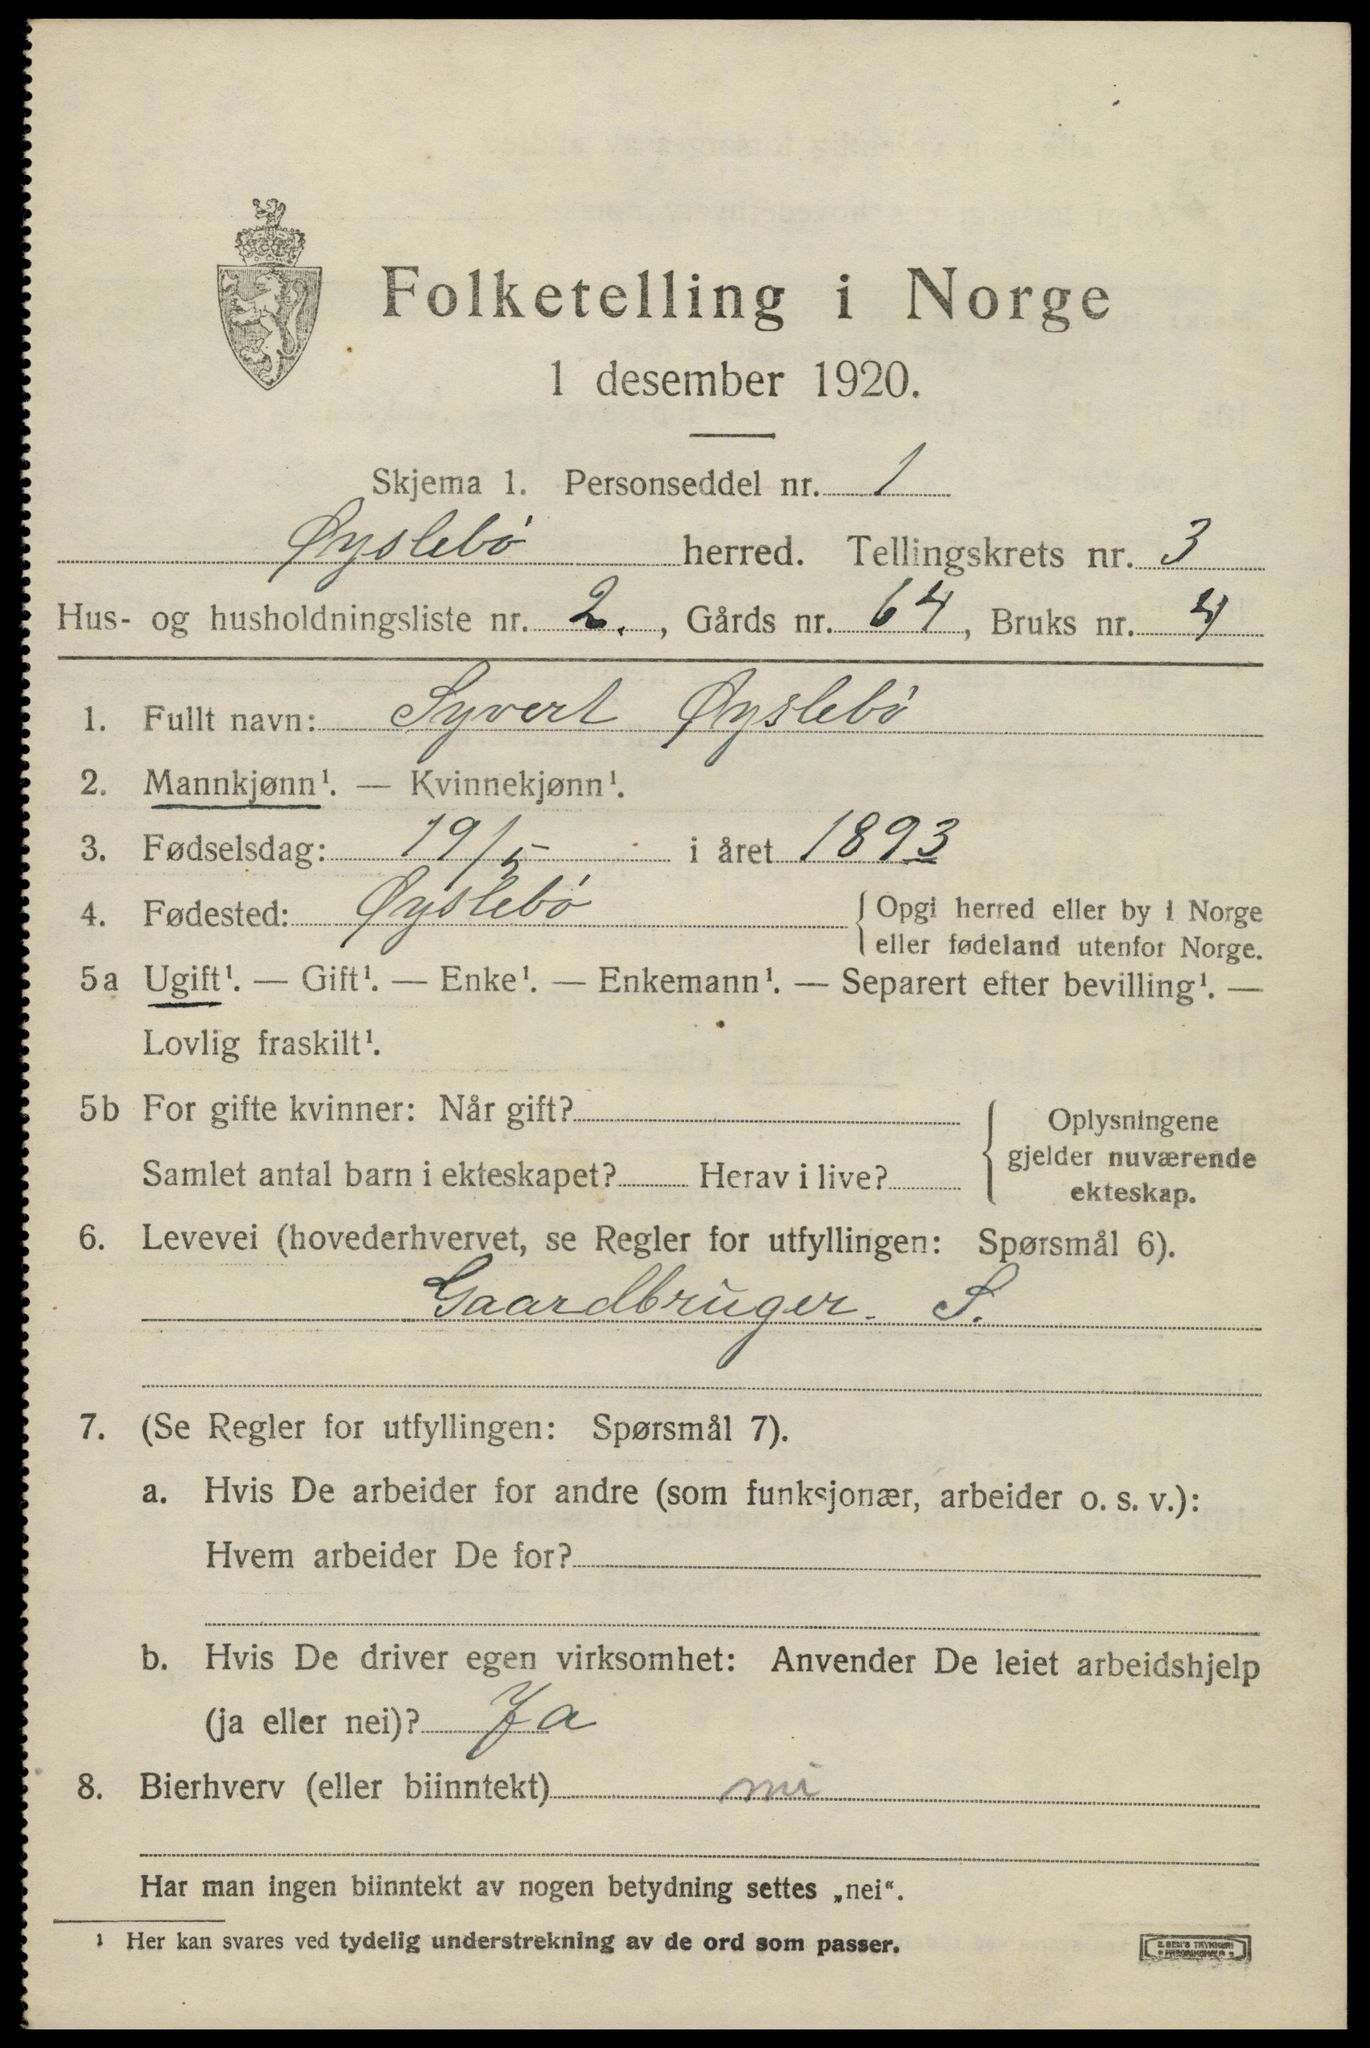 Folketelling i Norge
1 desember 1920.
Skjema 1. Personseddel nr. 1
Øyslebö herred. Tellingskrets nr. 3
Hus- og husholdningsliste nr. 2., Gårds nr. 64, Bruks nr. 4
1. Fullt navn: Syvert Øyslebö
2. Mannkjønn¹. — Kvinnekjønn¹.
3. Fødselsdag: 19/5 i året 1893
4. Fødested: Øyslebö { Opgi herred eller by i Norge
eller fødeland utenfor Norge.
5a Ugift¹. — Gift¹. — Enke¹. — Enkemann¹. — Separert efter bevilling¹. —
Lovlig fraskilt¹.
5b For gifte kvinner: Når gift?
Samlet antal barn i ekteskapet? Herav i live?
Oplysningene
gjelder nuværende
ekteskap.
6. Levevei (hovederhvervet, se Regler for utfyllingen: Spørsmål 6).
Gaardbruger. S.
7. (Se Regler for utfyllingen: Spørsmål 7).
a. Hvis De arbeider for andre (som funksjonær, arbeider o. s. v.):
Hvem arbeider De for?
b. Hvis De driver egen virksomhet: Anvender De leiet arbeidshjelp
(ja eller nei)? Ja
8. Bierhverv (eller biinntekt)
Har man ingen biinntekt av nogen betydning settes „nei“.
¹ Her kan svares ved tydelig understrekning av de ord som passer.